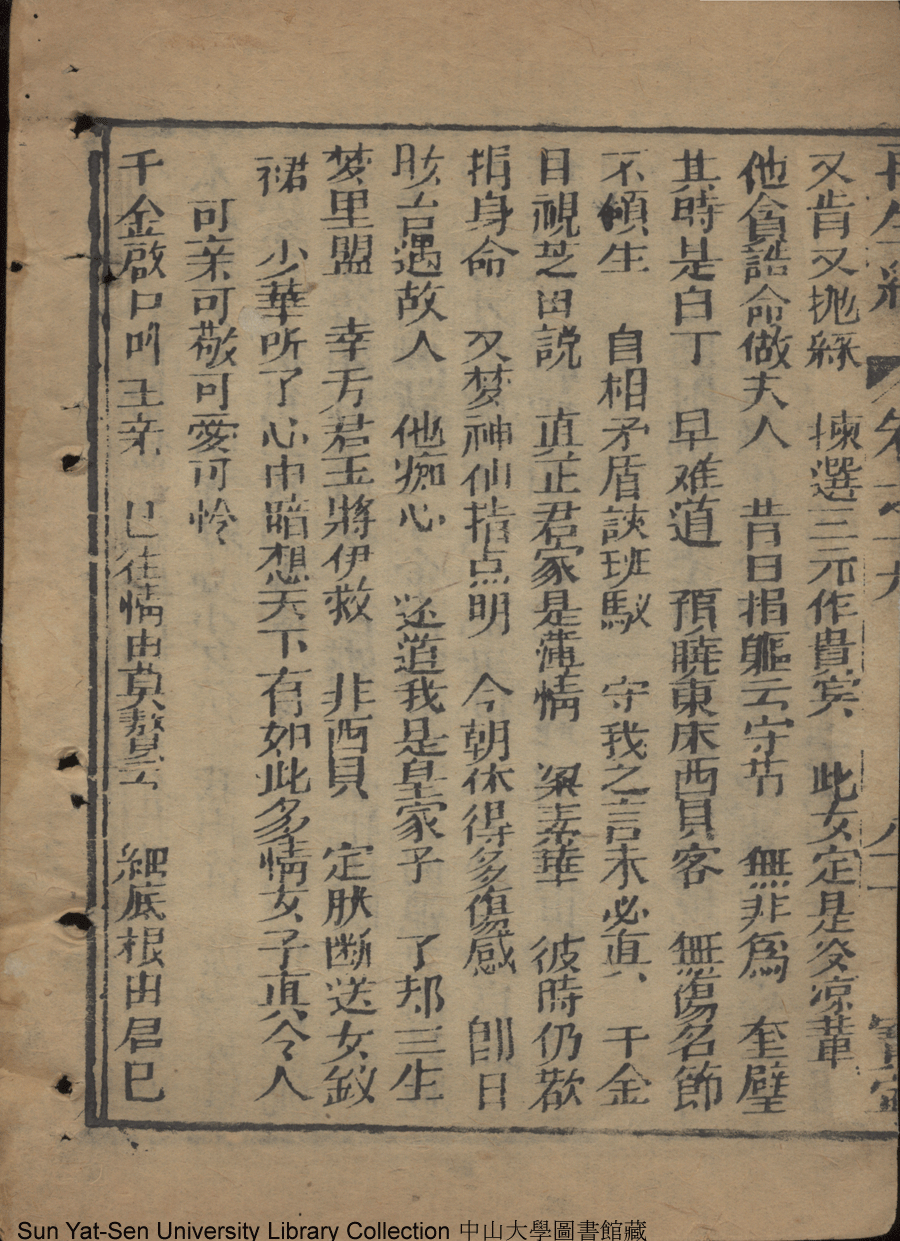 再生緣 卷之十九
又肯又拋繇 揀選三元作貴賓 此女定是炎凉輩
他貪誥命做夫人 昔日捐軀云守节 無非爲 奎壁
其時是白丁 早难道 預曉東床西貝客 無傷名節
不傾生 自相矛盾談班馭 守我之言未必真 千金
目視芝田説 真正君家是薄情 梁素華 彼時仍欲
捐身命 又梦神仙指点明 今朝休得多傷感 卽日
遇故人 他痴心 还道我是皇家子 了却三生
梦里盟 幸方君玉將伊救 非西貝 定朕断送女釵
裙 少華听了心中暗想天下有如此多情女子真令人
可亲可敬可愛可怜
千金啟口叫王亲 已往情由莫聱云 細底根由君已
Sun Yat-Sen University Library Collection 中山大學圖書館藏